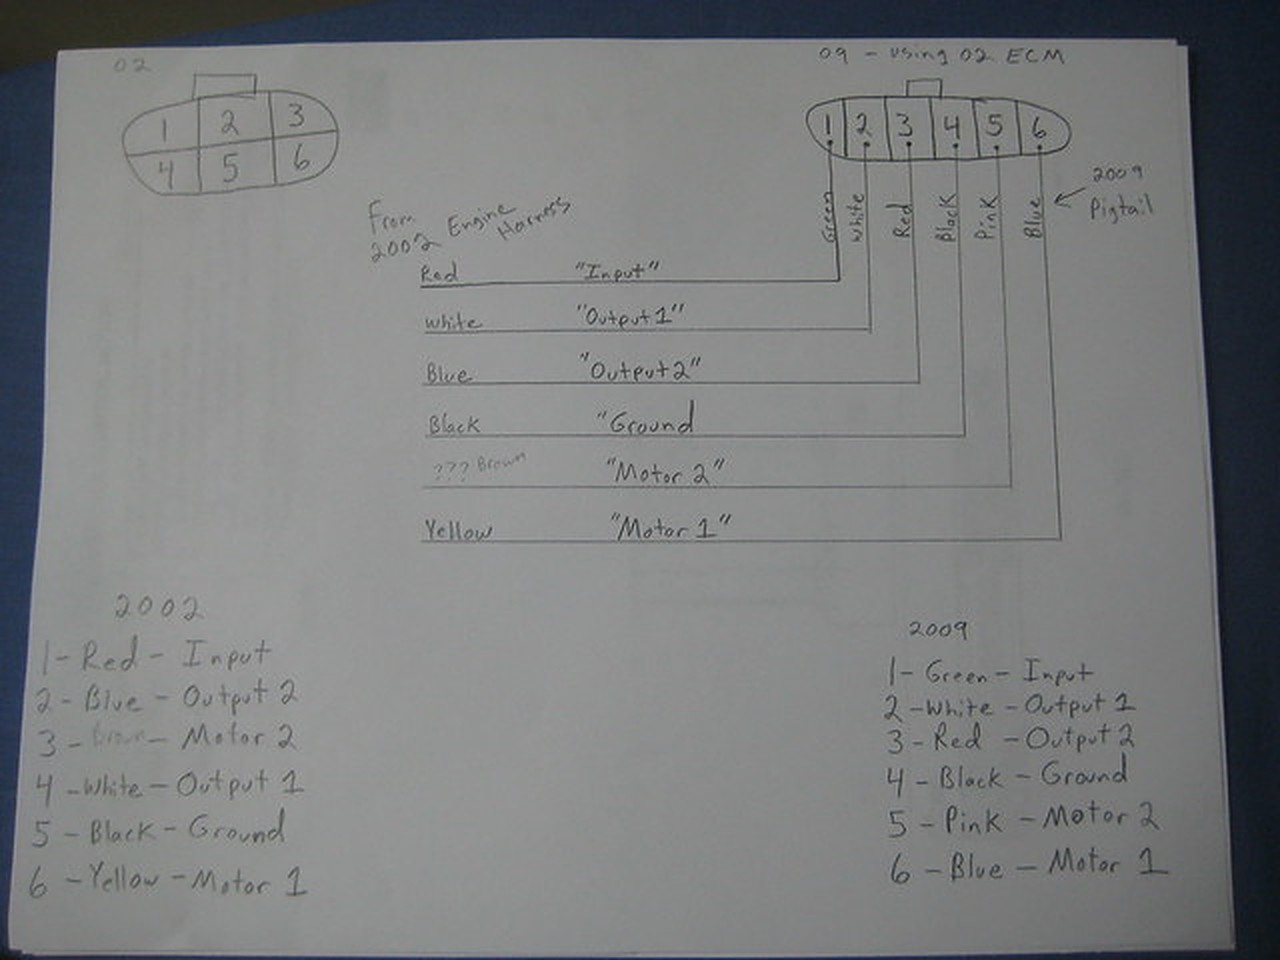 02
1 2 3
4 5 6
09 - using 02 ECM
1 2 3 4 5 6
Green White Red Black Pink Blue
2009
Pigtail
From
2002 Engine
Harness
Red "Input"
White "Output 1"
Blue "Output 2"
Black "Ground
??? Brown "Motor 2"
Yellow "Motor 1"
2002
1 - Red - Input
2 - Blue - Output 2
3 - Brown - Motor 2
4 - White - Output 1
5 - Black - Ground
6 - Yellow - Motor 1
2009
1 - Green - Input
2 - White - Output 1
3 - Red - Output 2
4 - Black - Ground
5 - Pink - Motor 2
6 - Blue - Motor 1